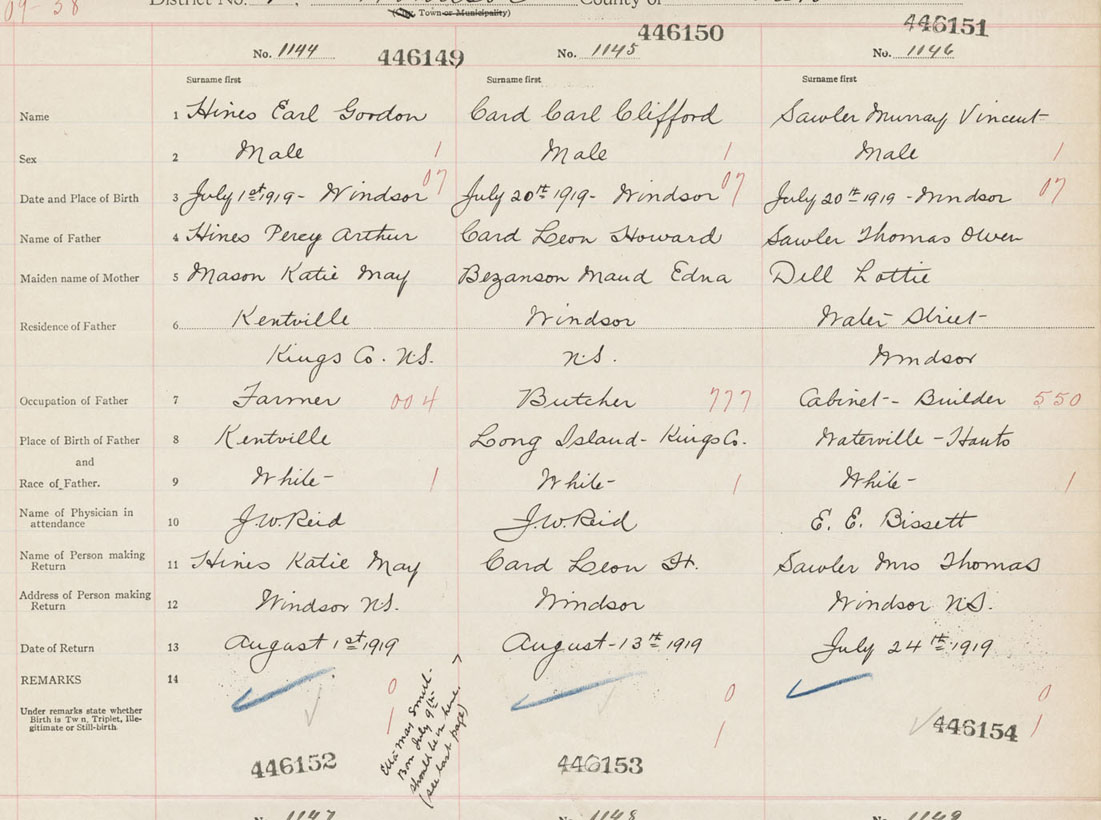 09-38
District No.
County of
Town or Municipality)
446149
446150
446151
No. 1144
No. 1145
No. 1146
Surname first
Surname first
Surname first
Name 1 Hines Earl Gordon Card Carl Clifford Sawler Murray Vincent
Sex 2 Male 1 Male 1 Male 1
Date and Place of Birth 3 July 1st 1919 - Windsor 07 July 20th 1919 - Windsor 07 July 20th 1919 - Windsor 07
Name of Father 4 Hines Percy Arthur Card Leon Howard Sawler Thomas Owen
Maiden name of Mother 5 Mason Katie May Bezanson Maud Edna Dell Lottie
Residence of Father 6 Kentville Windsor Water Street
Kings Co. N.S. N.S. Windsor
Occupation of Father 7 Farmer 004 Butcher 777 Cabinet - Builder 550
Place of Birth of Father 8 Kentville Long Island - Kings Co. Waterville - Hants
and
Race of Father. 9 White - 1 White - 1 White - 1
Name of Physician in
attendance 10 J.W. Reid J.W. Reid E. E. Bissett
Name of Person making
Return 11 Hines Katie May Card Leon H. Sawler Mrs Thomas
Address of Person making
Return 12 Windsor N.S. Windsor Windsor N.S.
Date of Return 13 August 1st 1919 August - 13th 1919 July 24th 1919
REMARKS 14 0 0 0
Under remarks state whether
Birth is Tw n, Triplet, Ille-
gitimate or Still-birth.
1 1 1
May Smith
Born July 9th
should be in here
(see last page)
446152
446153
446154
No. 1147
No. 1148
No. 1149